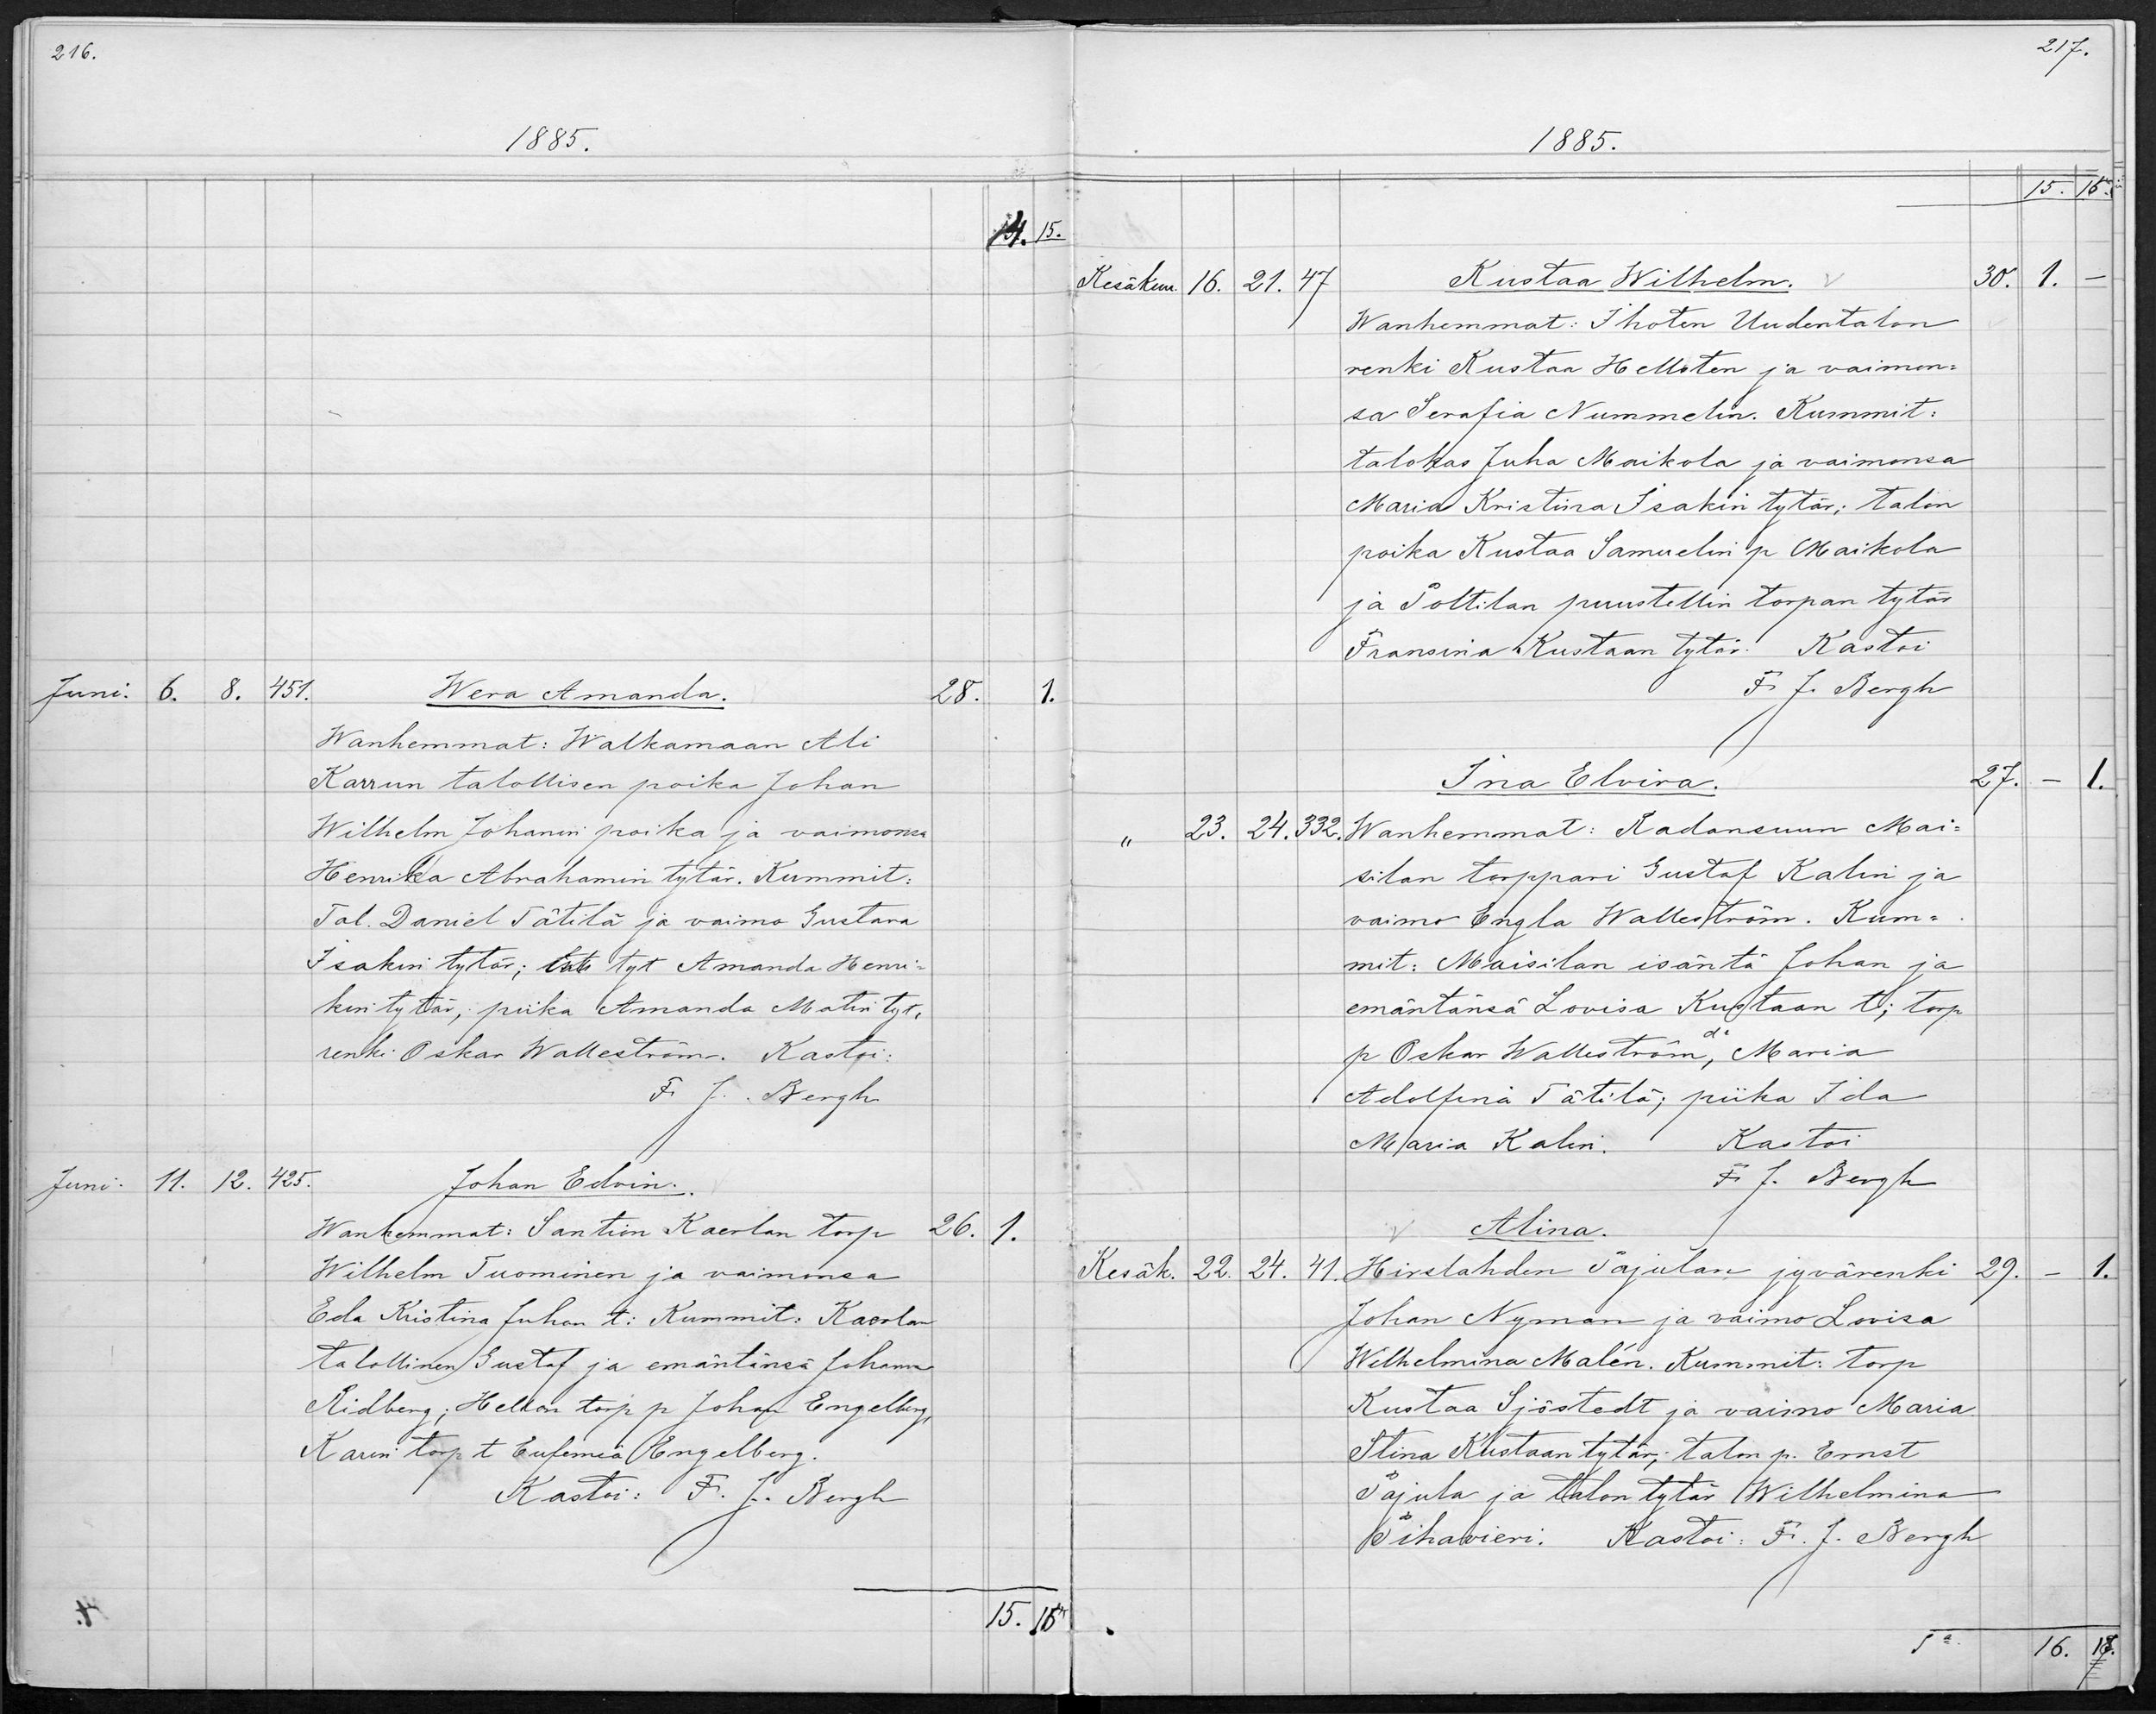 216.
1885.
14. 15.
Juni. 6. 8. 451. Wera Amanda. 28. 1.
Wanhemmat: Walkamaan Ali
Karrun talollisen poika Johan
Wilhelm Johanin poika ja vaimonsa
Henrika Abrahamin tytär. Kummit:
Tal. Daniel Tätilä ja vaimo Gustava
Isakin tytär; tyt Amanda Henri-
kin tytär, piika Amanda Matin tyt,
renki Oskar Walleström. Kastoi:
F. J. Bergh
Juni. 11. 12. 425. Johan Edvin.
Wanhemmat: Santion Kaerlan torp 26. 1.
Wilhelm Tuominen ja vaimonsa
Eda Kristina Juhan t: Kummit: Kaerlan
talollinen Gustaf ja emäntänsä Johanna
Ridberg; torp p Johan Engelberg,
Karin torp t Eufemia Engelberg.
Kastoi: F. J. Bergh
15. 16
217.
1885.
15. 16.
Kesäkuu. 16. 21. 47 Kustaa Wilhelm. 30. 1. –
Wanhemmat: Ihoten Uudentalon
renki Kustaa Hellsten ja vaimon-
sa Serafia Nummelin. Kummit:
talokas Juha Maikola ja vaimonsa
Maria Kristina Isakin tytär; talon
poika Kustaa Samuelin p Maikola
ja Poltilan puustellin torpan tytär
Fransina Kustaan tytär. Kastoi
F. J. Bergh
Ina Elvira. 27. – 1.
" 23. 24. 332. Wanhemmat: Radansuun Mai-
silan torppari Gustaf Kalin ja
vaimo Engla Walleström. Kum-
mit: Maisilan isäntä Johan ja
emäntänsä Lovisa Kustaan t; torp
p Oskar Walleström, d:o Maria
Adolfina Tätilä; piika Ida
Maria Kalin. Kastoi
F. J. Bergh
Alina.
Kesäk. 22. 24. 41. Hirslahden Pajulan jyvärenki 29. – 1.
Johan Nyman ja vaimo Lovisa
Wilhelmina Malén. Kummit: torp
Kustaa Sjöstedt ja vaimo Maria
Stina Kustaan tytär; talon p. Ernst
Pajula ja talon tytär Wilhelmina
Pihavieri. Kastoi: F. J. Bergh
16.